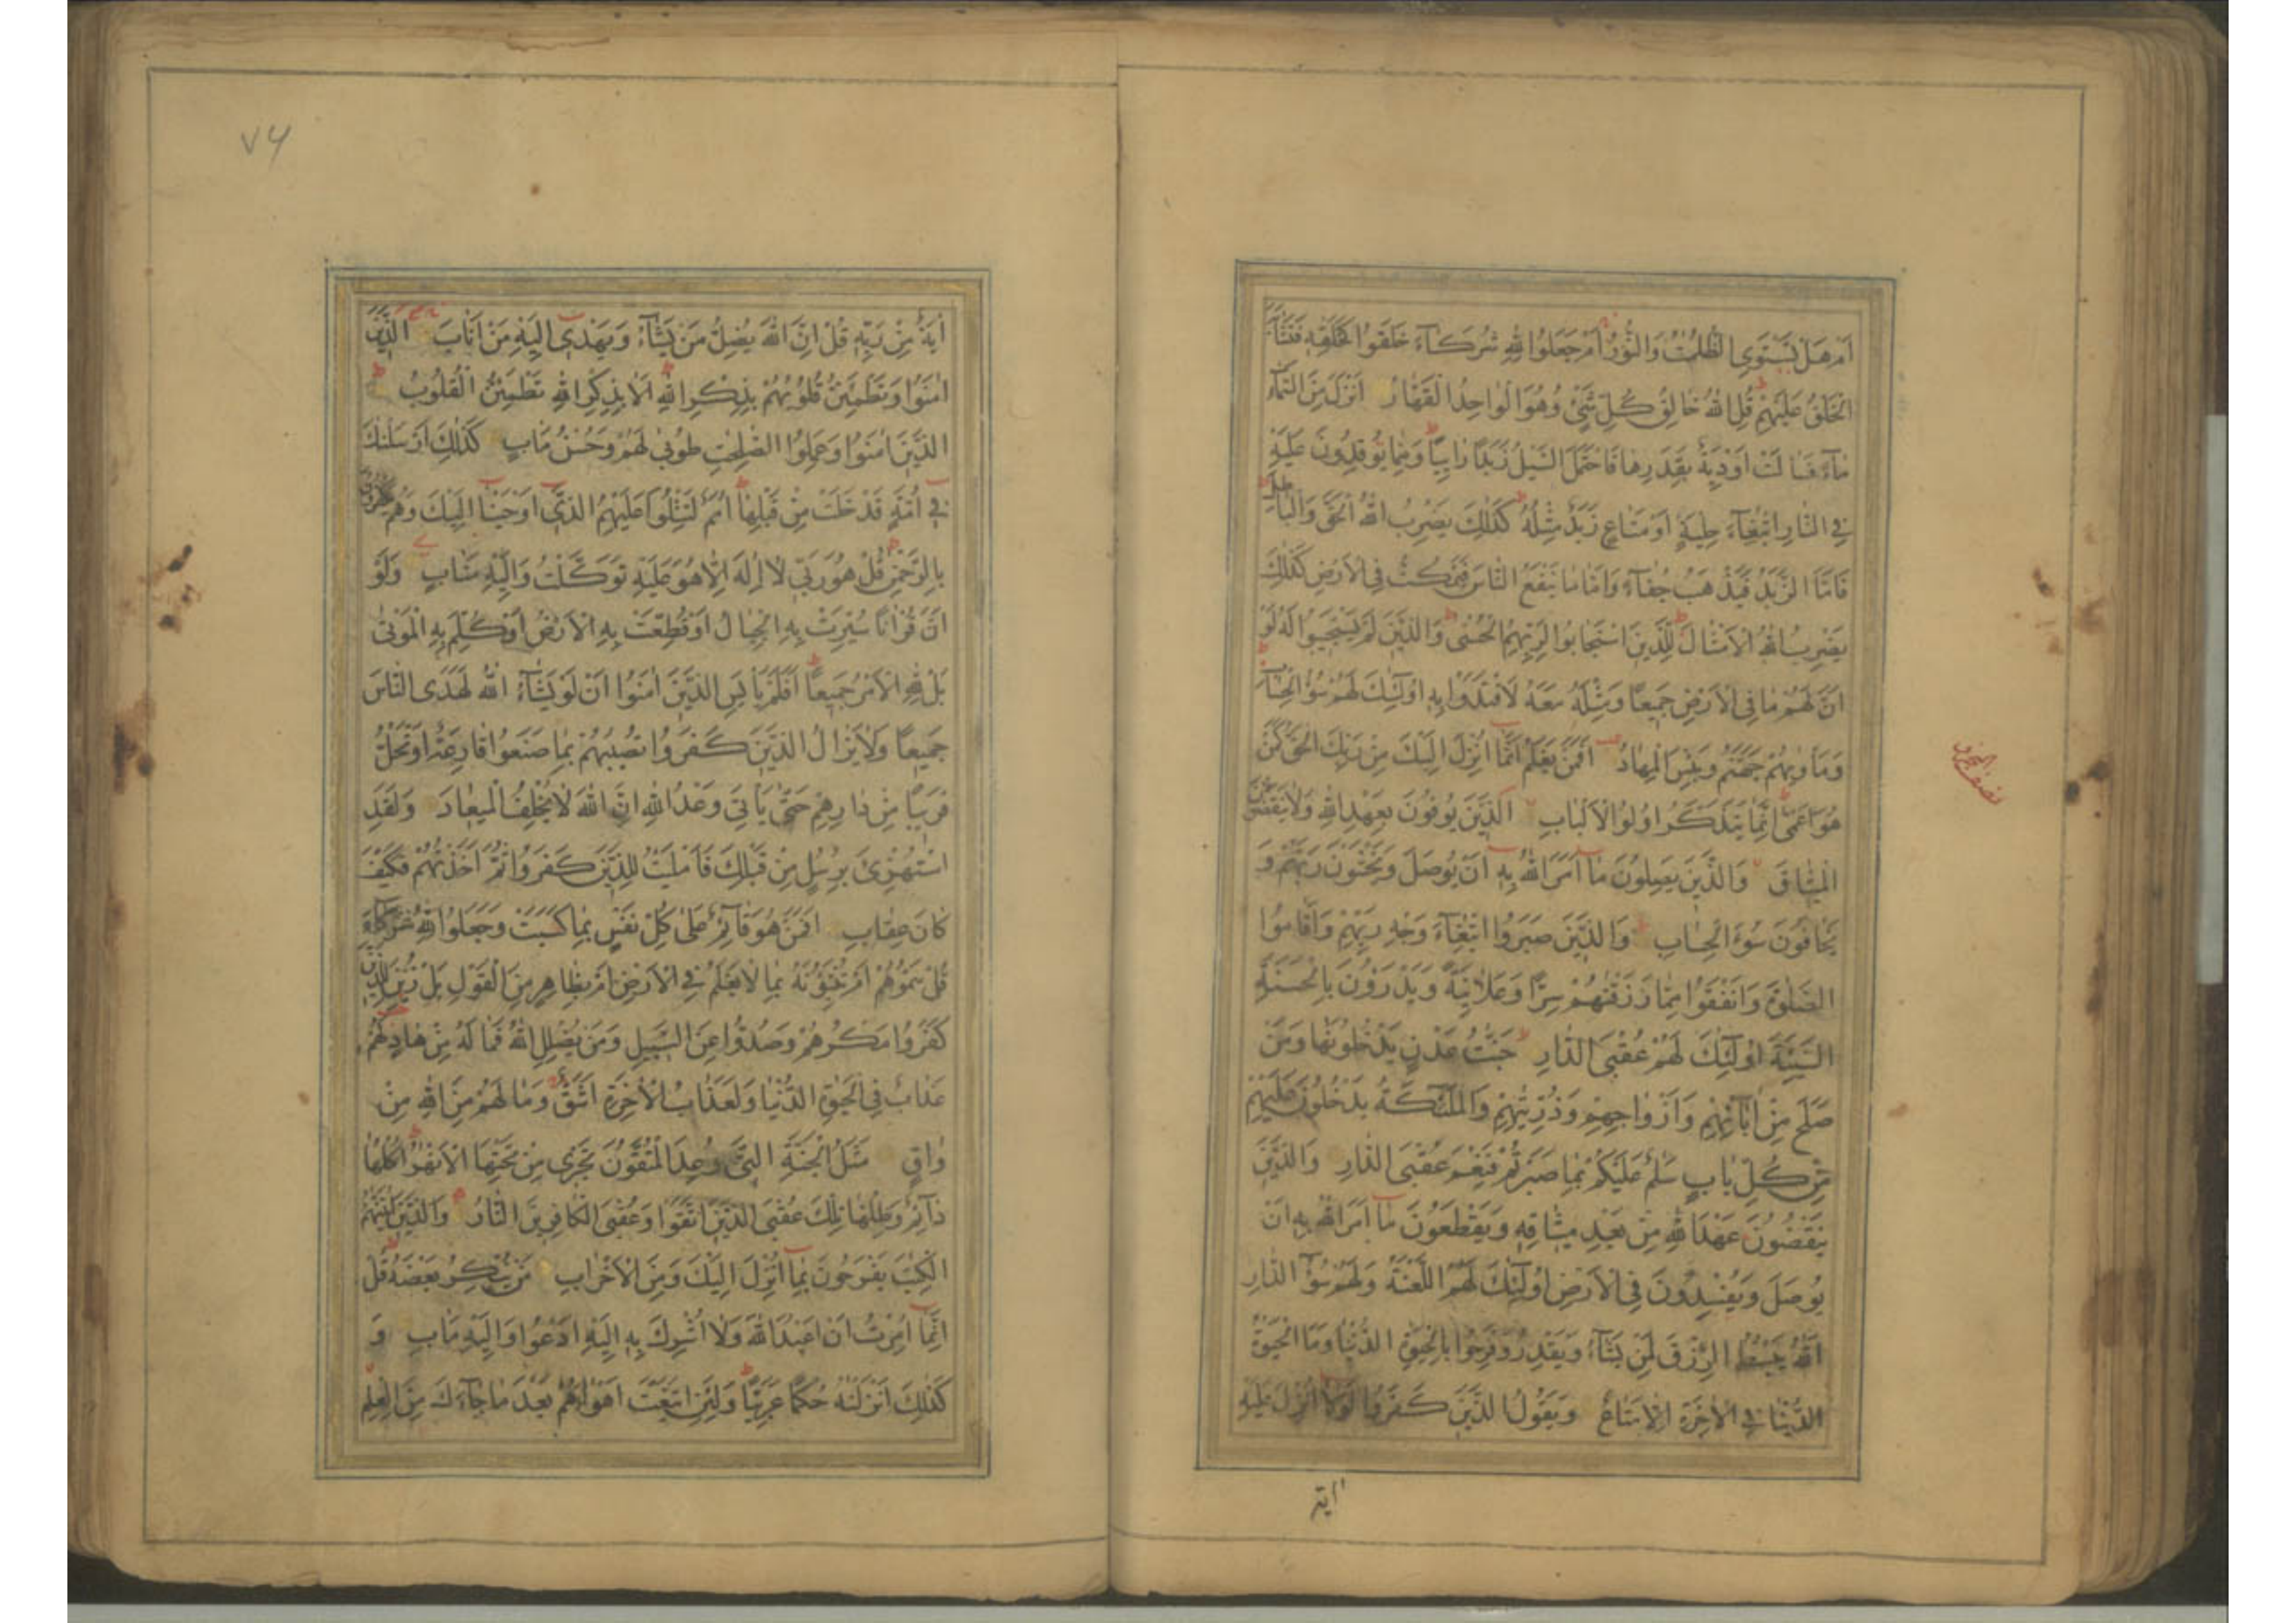 اَمْ هَلْ تَسْتَوِي الظُّلُمٰتُ وَالنُّورُ اَمْ جَعَلُوا لِلّٰهِ شُرَكَآءَ خَلَقُوا كَخَلْقِهٖ فَتَشَابَهَ
الْخَلْقُ عَلَيْهِمْ قُلِ اللّٰهُ خَالِقُ كُلِّ شَيْءٍ وَهُوَ الْوَاحِدُ الْقَهَّارُ اَنْزَلَ مِنَ السَّمَآءِ
مَآءً فَسَالَتْ اَوْدِيَةٌ بِقَدَرِهَا فَاحْتَمَلَ السَّيْلُ زَبَدًا رَابِيًا وَمِمَّا يُوقِدُونَ عَلَيْهِ
فِي النَّارِ ابْتِغَآءَ حِلْيَةٍ اَوْ مَتَاعٍ زَبَدٌ مِثْلُهُ كَذٰلِكَ يَضْرِبُ اللّٰهُ الْحَقَّ وَالْبَاطِلَ
فَاَمَّا الزَّبَدُ فَيَذْهَبُ جُفَآءً وَاَمَّا مَا يَنْفَعُ النَّاسَ فَيَمْكُثُ فِي الْاَرْضِ كَذٰلِكَ
يَضْرِبُ اللّٰهُ الْاَمْثَالَ لِلَّذِينَ اسْتَجَابُوا لِرَبِّهِمُ الْحُسْنٰى وَالَّذِينَ لَمْ يَسْتَجِيبُوا لَهُ لَوْ
اَنَّ لَهُمْ مَا فِي الْاَرْضِ جَمِيعًا وَمِثْلَهُ مَعَهُ لَافْتَدَوْا بِهٖ اُولٰٓئِكَ لَهُمْ سُوٓءُ الْحِسَابِ
وَمَاْوٰيهُمْ جَهَنَّمُ وَبِئْسَ الْمِهَادُ اَفَمَنْ يَعْلَمُ اَنَّمَا اُنْزِلَ اِلَيْكَ مِنْ رَبِّكَ الْحَقُّ كَمَنْ
هُوَ اَعْمٰى اِنَّمَا يَتَذَكَّرُ اُولُوا الْاَلْبَابِ اَلَّذِينَ يُوفُونَ بِعَهْدِ اللّٰهِ وَلَا يَنْقُضُونَ
الْمِيثَاقَ وَالَّذِينَ يَصِلُونَ مَا اَمَرَ اللّٰهُ بِهٖ اَنْ يُوصَلَ وَيَخْشَوْنَ رَبَّهُمْ وَ
يَخَافُونَ سُوٓءَ الْحِسَابِ وَالَّذِينَ صَبَرُوا ابْتِغَآءَ وَجْهِ رَبِّهِمْ وَاَقَامُوا
الصَّلٰوةَ وَاَنْفَقُوا مِمَّا رَزَقْنٰهُمْ سِرًّا وَعَلَانِيَةً وَيَدْرَؤُنَ بِالْحَسَنَةِ
السَّيِّئَةَ اُولٰٓئِكَ لَهُمْ عُقْبَى الدَّارِ جَنَّاتُ عَدْنٍ يَدْخُلُونَهَا وَمَنْ
صَلَحَ مِنْ اٰبَآئِهِمْ وَاَزْوَاجِهِمْ وَذُرِّيَّاتِهِمْ وَالْمَلٰٓئِكَةُ يَدْخُلُونَ عَلَيْهِمْ
مِنْ كُلِّ بَابٍ سَلٰمٌ عَلَيْكُمْ بِمَا صَبَرْتُمْ فَنِعْمَ عُقْبَى الدَّارِ وَالَّذِينَ
يَنْقُضُونَ عَهْدَ اللّٰهِ مِنْ بَعْدِ مِيثَاقِهٖ وَيَقْطَعُونَ مَا اَمَرَ اللّٰهُ بِهٖ اَنْ
يُوصَلَ وَيُفْسِدُونَ فِي الْاَرْضِ اُولٰٓئِكَ لَهُمُ اللَّعْنَةُ وَلَهُمْ سُوٓءُ الدَّارِ
اَللّٰهُ يَبْسُطُ الرِّزْقَ لِمَنْ يَشَآءُ وَيَقْدِرُ وَفَرِحُوا بِالْحَيٰوةِ الدُّنْيَا وَمَا الْحَيٰوةُ
الدُّنْيَا فِي الْاٰخِرَةِ اِلَّا مَتَاعٌ وَيَقُولُ الَّذِينَ كَفَرُوا لَوْلَا اُنْزِلَ عَلَيْهِ
اية
نصف الجزو
٧٤
اٰيَةٌ مِنْ رَبِّهٖ قُلْ اِنَّ اللّٰهَ يُضِلُّ مَنْ يَشَآءُ وَيَهْدِي اِلَيْهِ مَنْ اَنَابَ الَّذِينَ
اٰمَنُوا وَتَطْمَئِنُّ قُلُوبُهُمْ بِذِكْرِ اللّٰهِ اَلَا بِذِكْرِ اللّٰهِ تَطْمَئِنُّ الْقُلُوبُ
الَّذِينَ اٰمَنُوا وَعَمِلُوا الصّٰلِحٰتِ طُوبٰى لَهُمْ وَحُسْنُ مَاٰبٍ كَذٰلِكَ اَرْسَلْنٰكَ
فِي اُمَّةٍ قَدْ خَلَتْ مِنْ قَبْلِهَا اُمَمٌ لِتَتْلُوَا عَلَيْهِمُ الَّذِي اَوْحَيْنَا اِلَيْكَ وَهُمْ يَكْفُرُونَ
بِالرَّحْمٰنِ قُلْ هُوَ رَبِّي لَا اِلٰهَ اِلَّا هُوَ عَلَيْهِ تَوَكَّلْتُ وَاِلَيْهِ مَتَابِ وَلَوْ
اَنَّ قُرْاٰنًا سُيِّرَتْ بِهِ الْجِبَالُ اَوْ قُطِّعَتْ بِهِ الْاَرْضُ اَوْ كُلِّمَ بِهِ الْمَوْتٰى
بَلْ لِلّٰهِ الْاَمْرُ جَمِيعًا اَفَلَمْ يَايْـَٔسِ الَّذِينَ اٰمَنُوا اَنْ لَوْ يَشَآءُ اللّٰهُ لَهَدَى النَّاسَ
جَمِيعًا وَلَا يَزَالُ الَّذِينَ كَفَرُوا تُصِيبُهُمْ بِمَا صَنَعُوا قَارِعَةٌ اَوْ تَحُلُّ
قَرِيبًا مِنْ دَارِهِمْ حَتّٰى يَاْتِيَ وَعْدُ اللّٰهِ اِنَّ اللّٰهَ لَا يُخْلِفُ الْمِيعَادَ وَلَقَدِ
اسْتُهْزِئَ بِرُسُلٍ مِنْ قَبْلِكَ فَاَمْلَيْتُ لِلَّذِينَ كَفَرُوا ثُمَّ اَخَذْتُهُمْ فَكَيْفَ
كَانَ عِقَابِ اَفَمَنْ هُوَ قَآئِمٌ عَلٰى كُلِّ نَفْسٍ بِمَا كَسَبَتْ وَجَعَلُوا لِلّٰهِ شُرَكَآءَ
قُلْ سَمُّوهُمْ اَمْ تُنَبِّؤُنَهُ بِمَا لَا يَعْلَمُ فِي الْاَرْضِ اَمْ بِظَاهِرٍ مِنَ الْقَوْلِ بَلْ زُيِّنَ لِلَّذِينَ
كَفَرُوا مَكْرُهُمْ وَصُدُّوا عَنِ السَّبِيلِ وَمَنْ يُضْلِلِ اللّٰهُ فَمَا لَهُ مِنْ هَادٍ لَهُمْ
عَذَابٌ فِي الْحَيٰوةِ الدُّنْيَا وَلَعَذَابُ الْاٰخِرَةِ اَشَقُّ وَمَا لَهُمْ مِنَ اللّٰهِ مِنْ
وَاقٍ مَثَلُ الْجَنَّةِ الَّتِي وُعِدَ الْمُتَّقُونَ تَجْرِي مِنْ تَحْتِهَا الْاَنْهٰرُ اُكُلُهَا
دَآئِمٌ وَظِلُّهَا تِلْكَ عُقْبَى الَّذِينَ اتَّقَوْا وَعُقْبَى الْكَافِرِينَ النَّارُ وَالَّذِينَ اٰتَيْنٰهُمُ
الْكِتٰبَ يَفْرَحُونَ بِمَا اُنْزِلَ اِلَيْكَ وَمِنَ الْاَحْزَابِ مَنْ يُنْكِرُ بَعْضَهُ قُلْ
اِنَّمَا اُمِرْتُ اَنْ اَعْبُدَ اللّٰهَ وَلَا اُشْرِكَ بِهٖ اِلَيْهِ اَدْعُوا وَاِلَيْهِ مَاٰبِ وَ
كَذٰلِكَ اَنْزَلْنٰهُ حُكْمًا عَرَبِيًّا وَلَئِنِ اتَّبَعْتَ اَهْوَآءَهُمْ بَعْدَ مَا جَآءَكَ مِنَ الْعِلْمِ